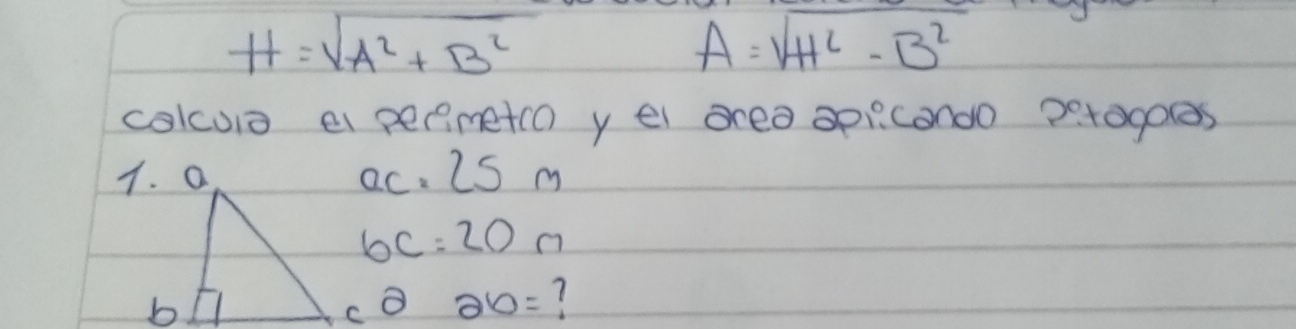 H = √A² + B² A = √H² - B²
calcula el perimetro y el area aplicando Pitagoras
1. a ac = 25 m
bc = 20 m
b c a ab = ?